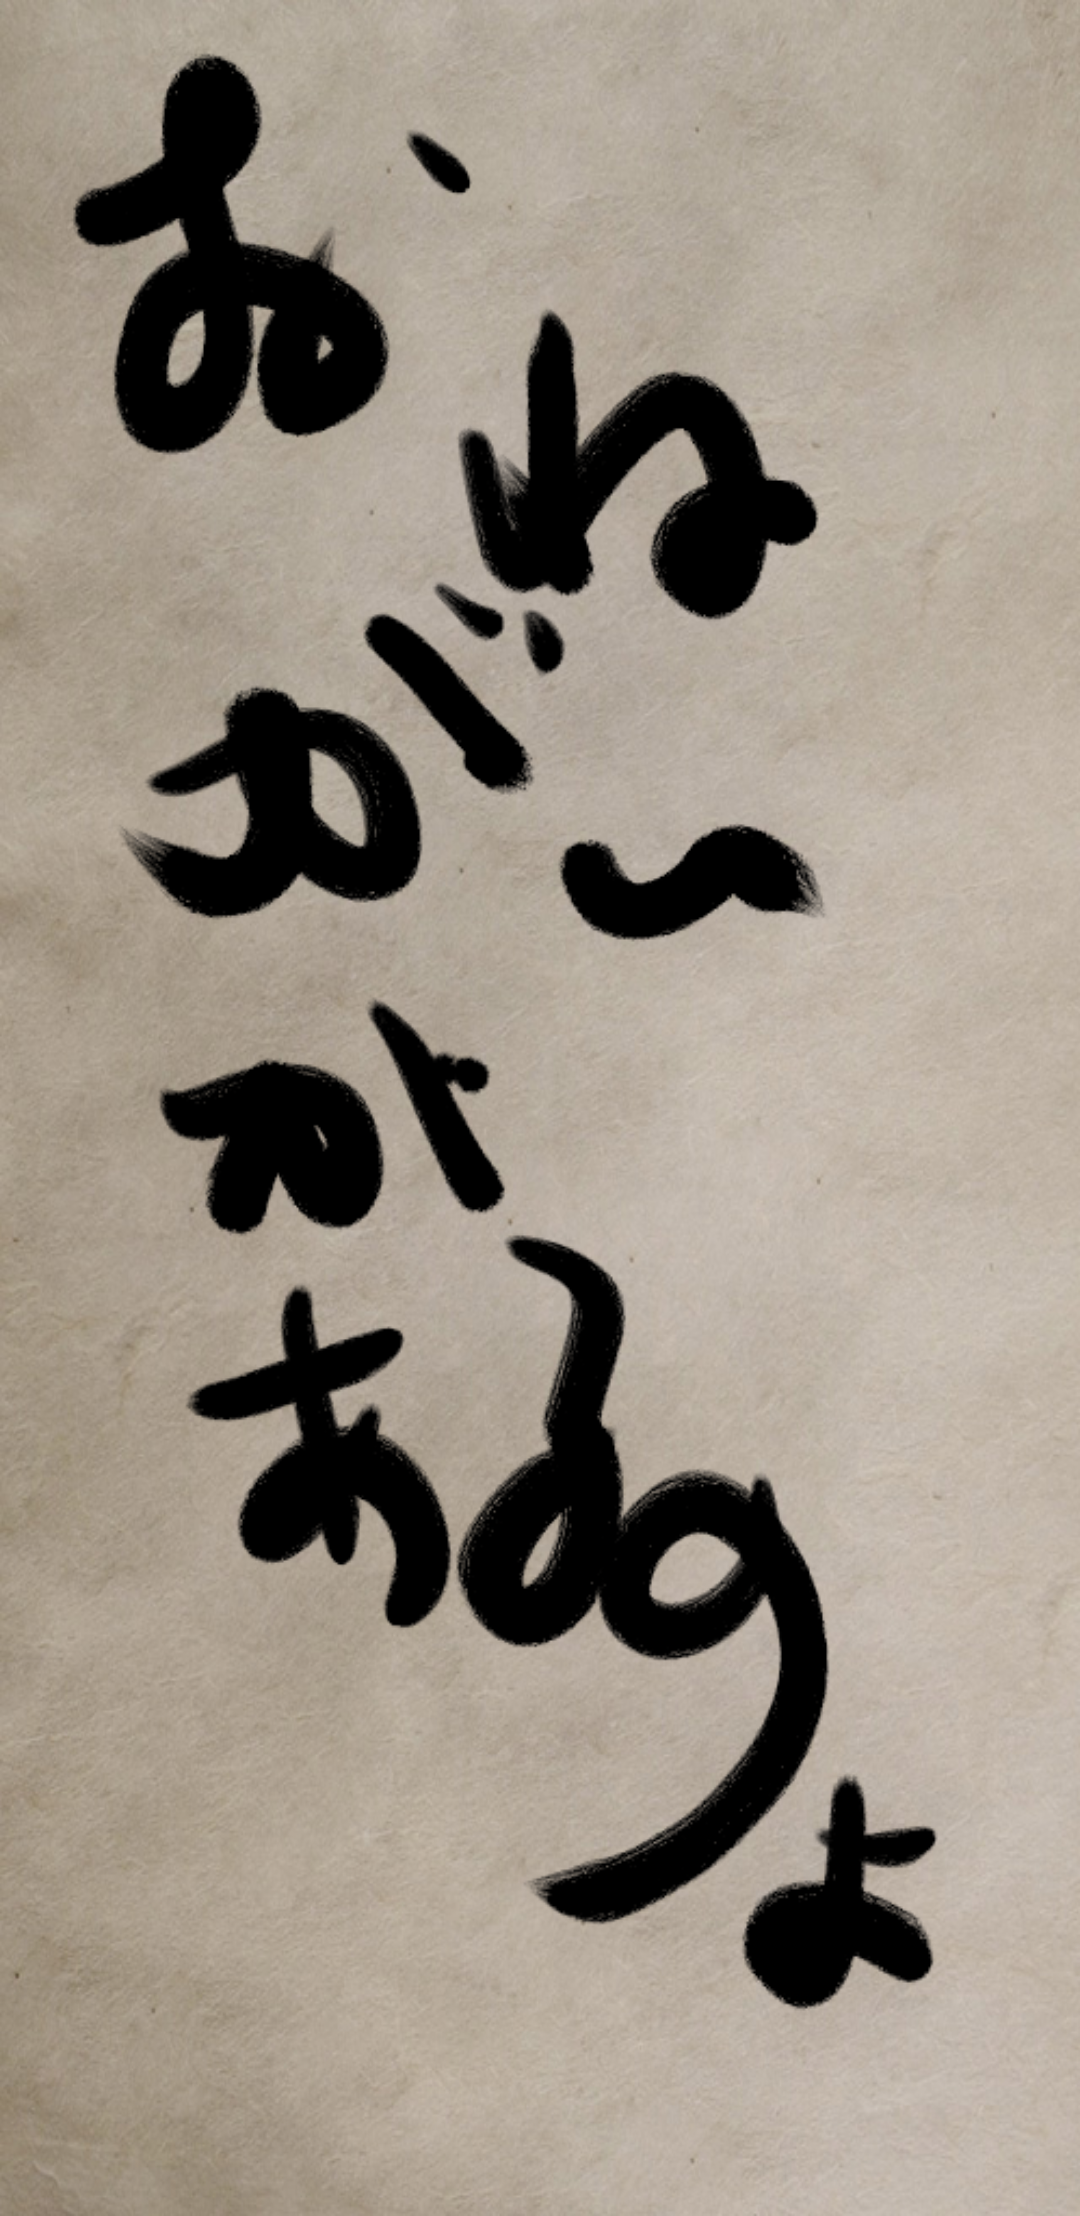 おねがい
が
あるの
よ